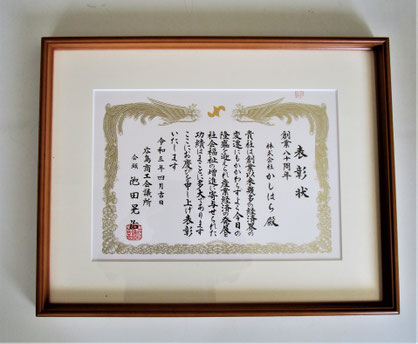 表彰状
創業八十周年
株式会社 かしはら殿
貴社は創業以来幾多の経済界の
変遷にもかかわらずよく今日の
隆盛を迎えられ産業経済の発展と
社会福祉の増進に寄与せられた
功績はまことに多大であります
ここにお慶びを申し上げ表彰
いたします
令和三年四月吉日
広島商工会議所
会頭 池田晃治